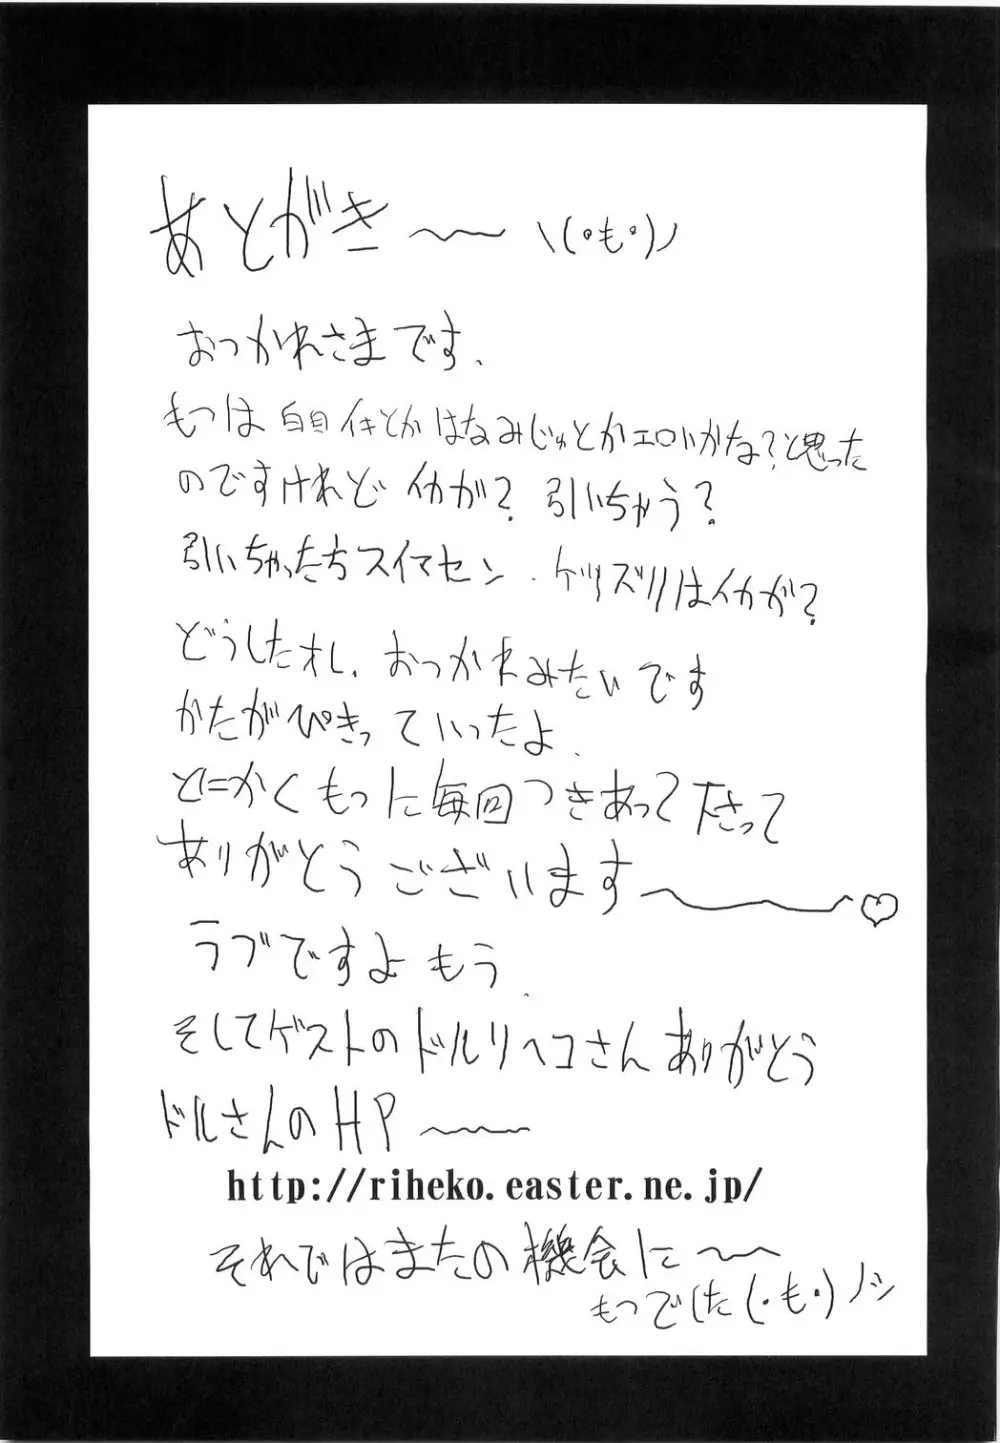 あとがき〜 \(・も・)ノ
おっかれさまです.
もつは白目イキとかはなみじゅとかエロいかな?と思った
のですけれど イカが? 引いちゃう?
引いちゃったらスイマセン. ケツズリはイカが?
どうしたオレ. おっかれみたいです
かたがぴきっ ていったよ.
とにかくもつに毎回つきあって下さって
ありがとうございます〜♡
ラブですよもう.
そしてゲストのドルリヘコさんありがとう
ドルさんのHP〜
http://riheko.easter.ne.jp/
それではまたの機会に〜
もつでした(・も・)ノシ